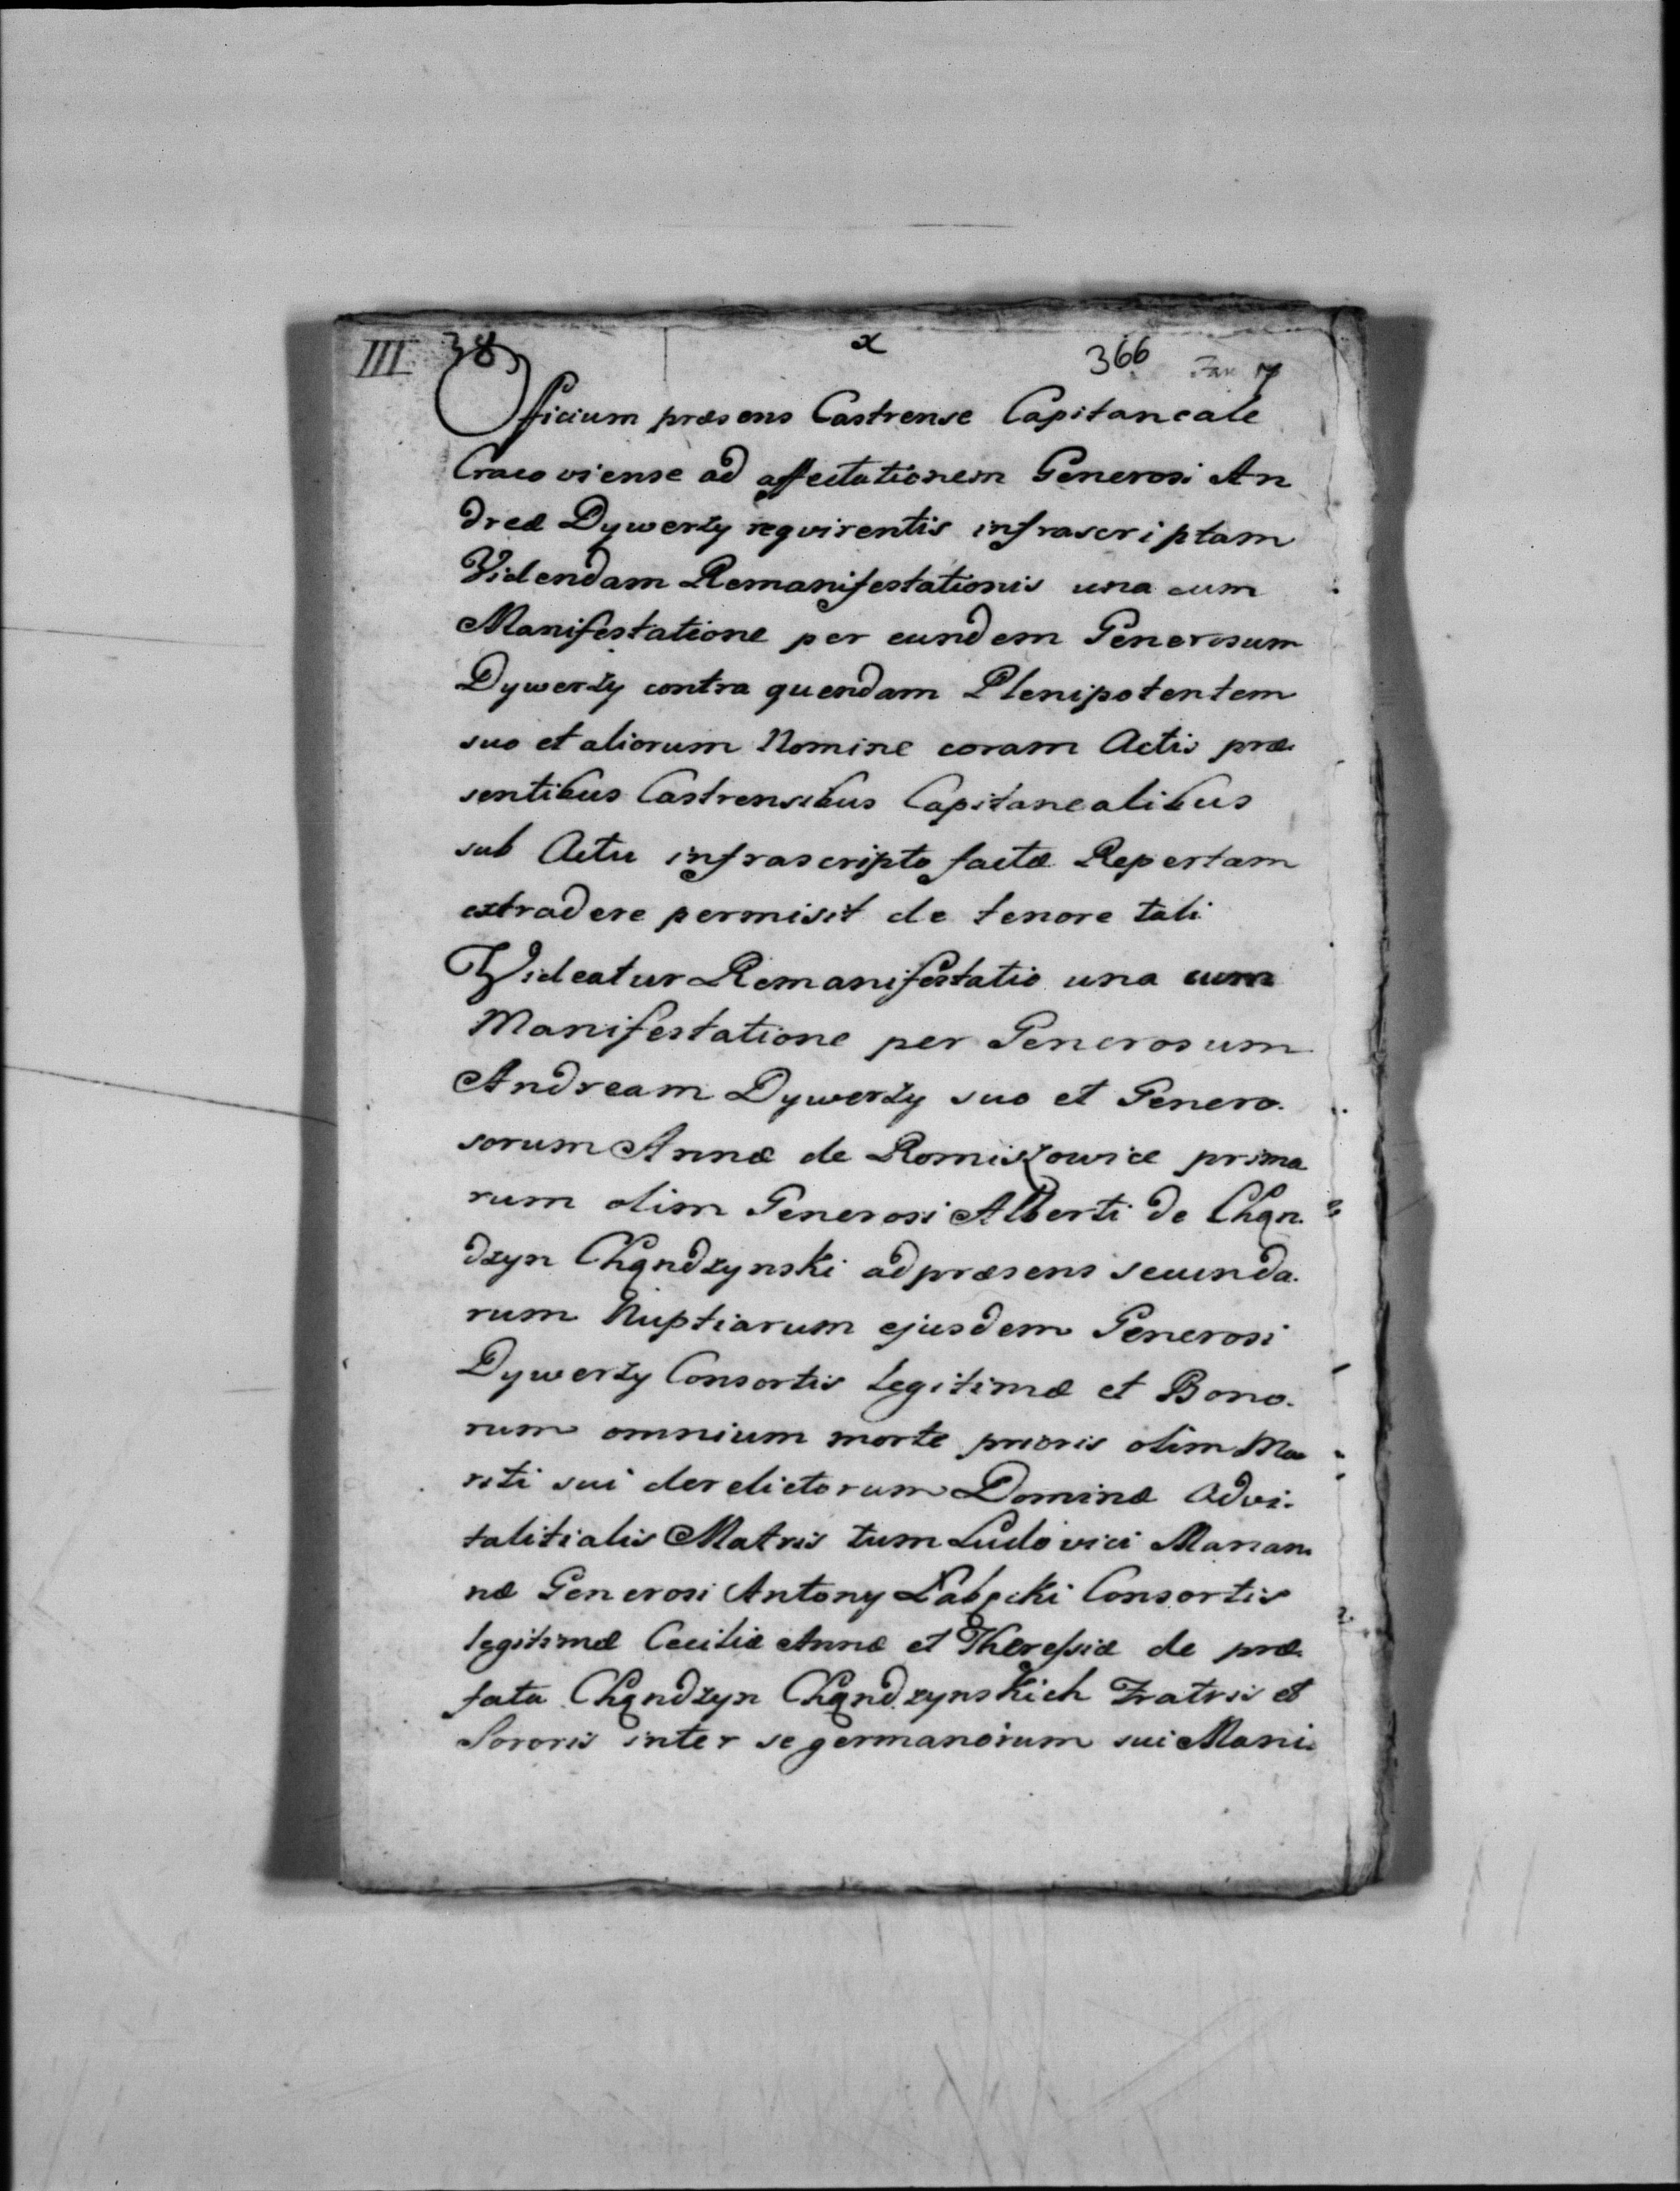 III 38 x 366
Officium præsens Castrense Capitaneale
Cracoviense ad affectationem Generosi An
dreæ Dywerzy reqvirentis infrascriptam
Videndam Remanifestationis una cum
Manifestatione per eundem Generosum
Dywerzy contra quendam Plenipotentem
suo et aliorum Nomine coram Actis præ
sentibus Castrensibus Capitanealibus
sub Actu infrascripto factæ Repertam
extradere permisit de tenore tali
Videatur Remanifestatio una cum
Manifestatione per Generosum
Andream Dywerzy suo et Genero.
sorum Annæ de Romiszowice prima
rum olim Generosi Alberti de Chąn.
dzyn Chądzynski ad præsens secunda.
rum Nuptiarum ejusdem Generosi
Dywerzy Consortis legitimæ et Bono.
rum omnium morte prioris olim Ma
riti sui derelictorum Dominæ Advi.
talitialis Matris tum Ludovici Marian
næ Generosi Antony Łabęcki Consortis
legitimæ Ceciliæ Annæ et Theressiæ de præ
fata Chąndzyn Chąndzynskich Fratris et
Sororis inter se germanorum sui Mani